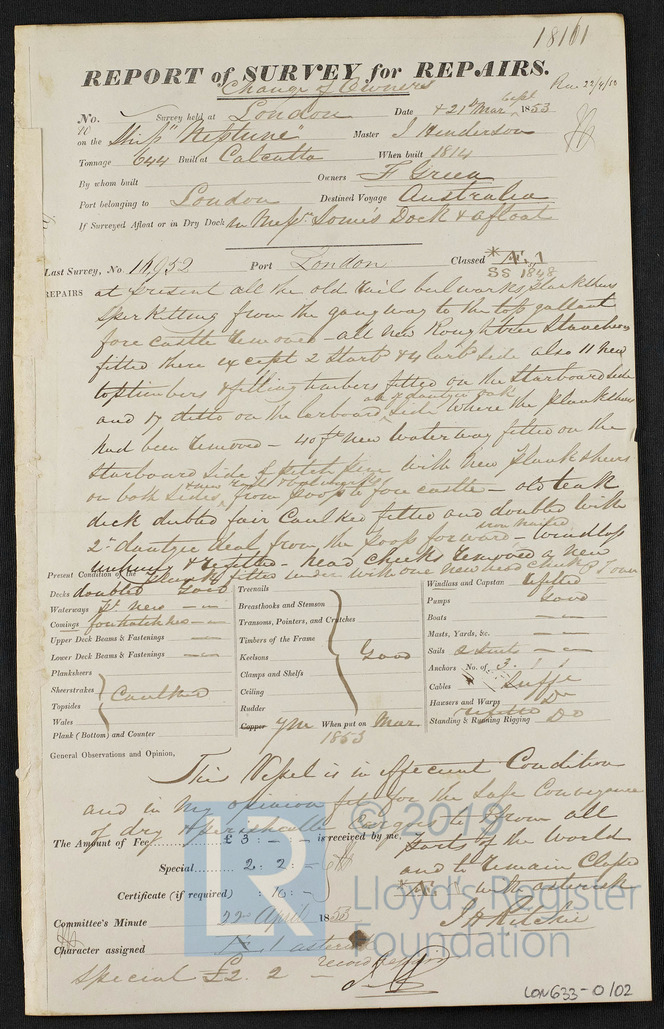 18101
REPORT of SURVEY for REPAIRS.
Change of Owners
Rec 22/4/53
No. Survey held at London Date & 21st Mar 1853
on the Ship "Neptune" Master J Henderson
Tonnage 644 Built at Calcutta When built 1814
By whom built Owners F Green
Port belonging to London Destined Voyage Australia
If Surveyed Afloat or in Dry Dock in Messrs Dock & afloat
Last Survey, No Port London Classed *Æ.1
SS 1848
REPAIRS at present all the old rail bulwarks planksheers
Spirketting from the gangway to the top gallant
fore castle removed - all new Roughtree Stancheons
fitted there except 2 Starbd & 4 larbd side also 11 new
toptimbers & filling timbers fitted on the Starboard side
all of dantzic oak
and 17 ditto on the larboard side where the planksheers
had been removed - 40 ft new waterway fitted on the
Starboard side of pitch pine with new planksheers
on both sides from poop to fore castle - old teak
deck dubbed fair Caulked fitted and doubled with
iron nailed
2in dantzic deal from the poop forward - windlass
unhung & refitted - head cheeks removed a new
plank fitted under with one new head cheek
Present Condition of the
Decks doubled Good
Waterways pt new
Comings for hatches
Upper Deck Beams & Fastenings
Lower Deck Beams & Fastenings
Planksheers
Sheerstrakes
Topsides
Wales
Caulked
Plank (Bottom) and Counter
Treenails
Breasthooks and Stemson
Transoms, Pointers, and Crutches
Timbers of the Frame
Keelsons
Clamps and Shelfs
Ceiling
Rudder
Good
Copper YM When put on Mar
1853
Windlass and Capstan refitted
Pumps Good
Boats
Masts, Yards, &c.
Sails a suit
Anchors No. of 3.
Cables Suffe
Hawsers and Warps Do
Standing & Running Rigging refitted Do
General Observations and Opinion,
This Vessel is in efficient Condition
and in my opinion fit for the safe Conveyance
of dry & perishable Cargoes to & from all
parts of the World
and to remain Classed
*Æ.1 with asterisk
J H Ritchie
The Amount of Fee £3 : - : - is received by me,
Special 2 : 2 : -
Certificate (if required) : 10 : -
Committee's Minute 22 April 1853
Character assigned Æ 1 asterisk
Special £2. 2
© 2019
LR
Lloyd's Register
Foundation
LON633-0102